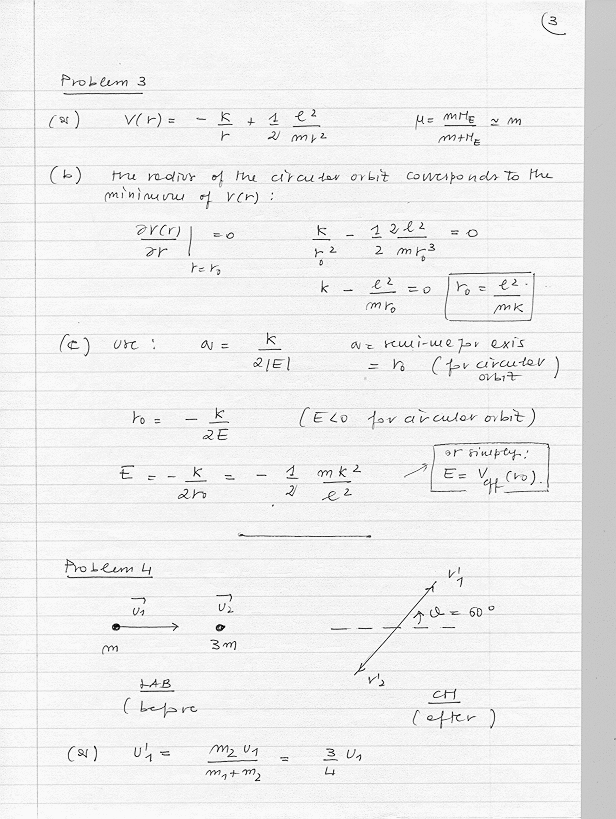 3
Problem 3
(a) V(r) = - k/r + 1/2 ℓ²/mr² μ = mM_E/(m+M_E) ≃ m
(b) the radius of the circular orbit corresponds to the
minimum of V(r) :
∂V(r)/∂r |_{r=r₀} = 0 k/r₀² - 1/2 2ℓ²/mr₀³ = 0
k - ℓ²/mr₀ = 0 r₀ = ℓ²/mk
(c) use : a = k/2|E| a = semi-major axis
= r₀ (for circular
orbit)
r₀ = - k/2E (E<0 for circular orbit)
or simply:
E = - k/2r₀ = - 1/2 mk²/ℓ² → E = V_eff(r₀).
Problem 4
v'₁
u⃗₁ u⃗₂ ϑ = 60°
m 3m
v'₂
LAB CM
(before (after)
(a) u'₁ = m₂u₁/(m₁+m₂) = 3/4 u₁